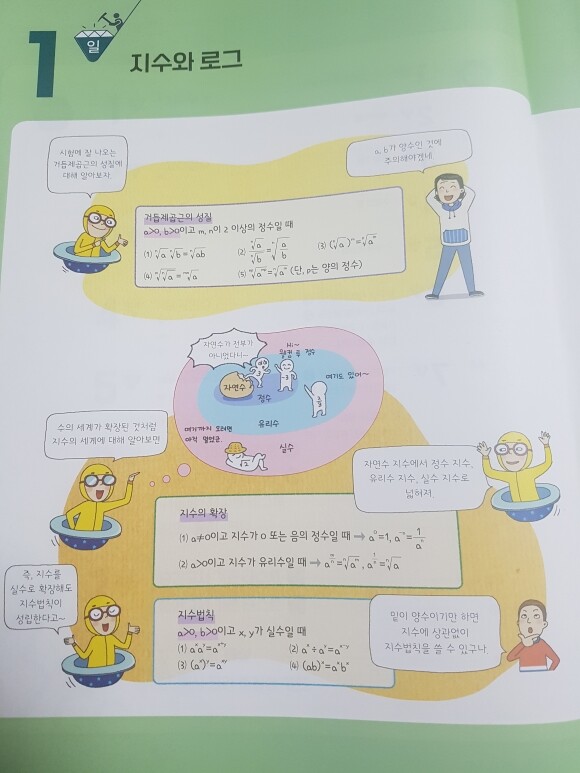 1
일
지수와 로그
시험에 잘 나오는
거듭제곱근의 성질에
대해 알아보자.
a, b가 양수인 것에
주의해야겠네.
거듭제곱근의 성질
a>0, b>0이고 m, n이 2 이상의 정수일 때
(1) ⁿ√a ⁿ√b = ⁿ√ab
(2) ⁿ√a / ⁿ√b = ⁿ√(a/b)
(3) (ⁿ√a)ᵐ = ⁿ√aᵐ
(4) ᵐ√ⁿ√a = ᵐⁿ√a
(5) ⁿᵖ√aᵐᵖ = ⁿ√aᵐ (단, p는 양의 정수)
자연수가 전부가
아니었다니~
Hi~
정수
여기도 있어~
자연수
3
-3
정수
유리수
여기까지 오려면
아직 멀었군.
실수
수의 세계가 확장된 것처럼
지수의 세계에 대해 알아보면
자연수 지수에서 정수 지수,
유리수 지수, 실수 지수로
넓혀져.
지수의 확장
(1) a≠0이고 지수가 0 또는 음의 정수일 때 → a⁰=1, a⁻ⁿ=1/aⁿ
(2) a>0이고 지수가 유리수일 때 → a^(m/n)=ⁿ√aᵐ, a^(1/n)=ⁿ√a
즉, 지수를
실수로 확장해도
지수법칙이
성립한다고~
지수법칙
a>0, b>0이고 x, y가 실수일 때
(1) aˣaʸ=aˣ⁺ʸ
(2) aˣ÷aʸ=aˣ⁻ʸ
(3) (aˣ)ʸ=aˣʸ
(4) (ab)ˣ=aˣbˣ
밑이 양수이기만 하면
지수에 상관없이
지수법칙을 쓸 수 있구나.